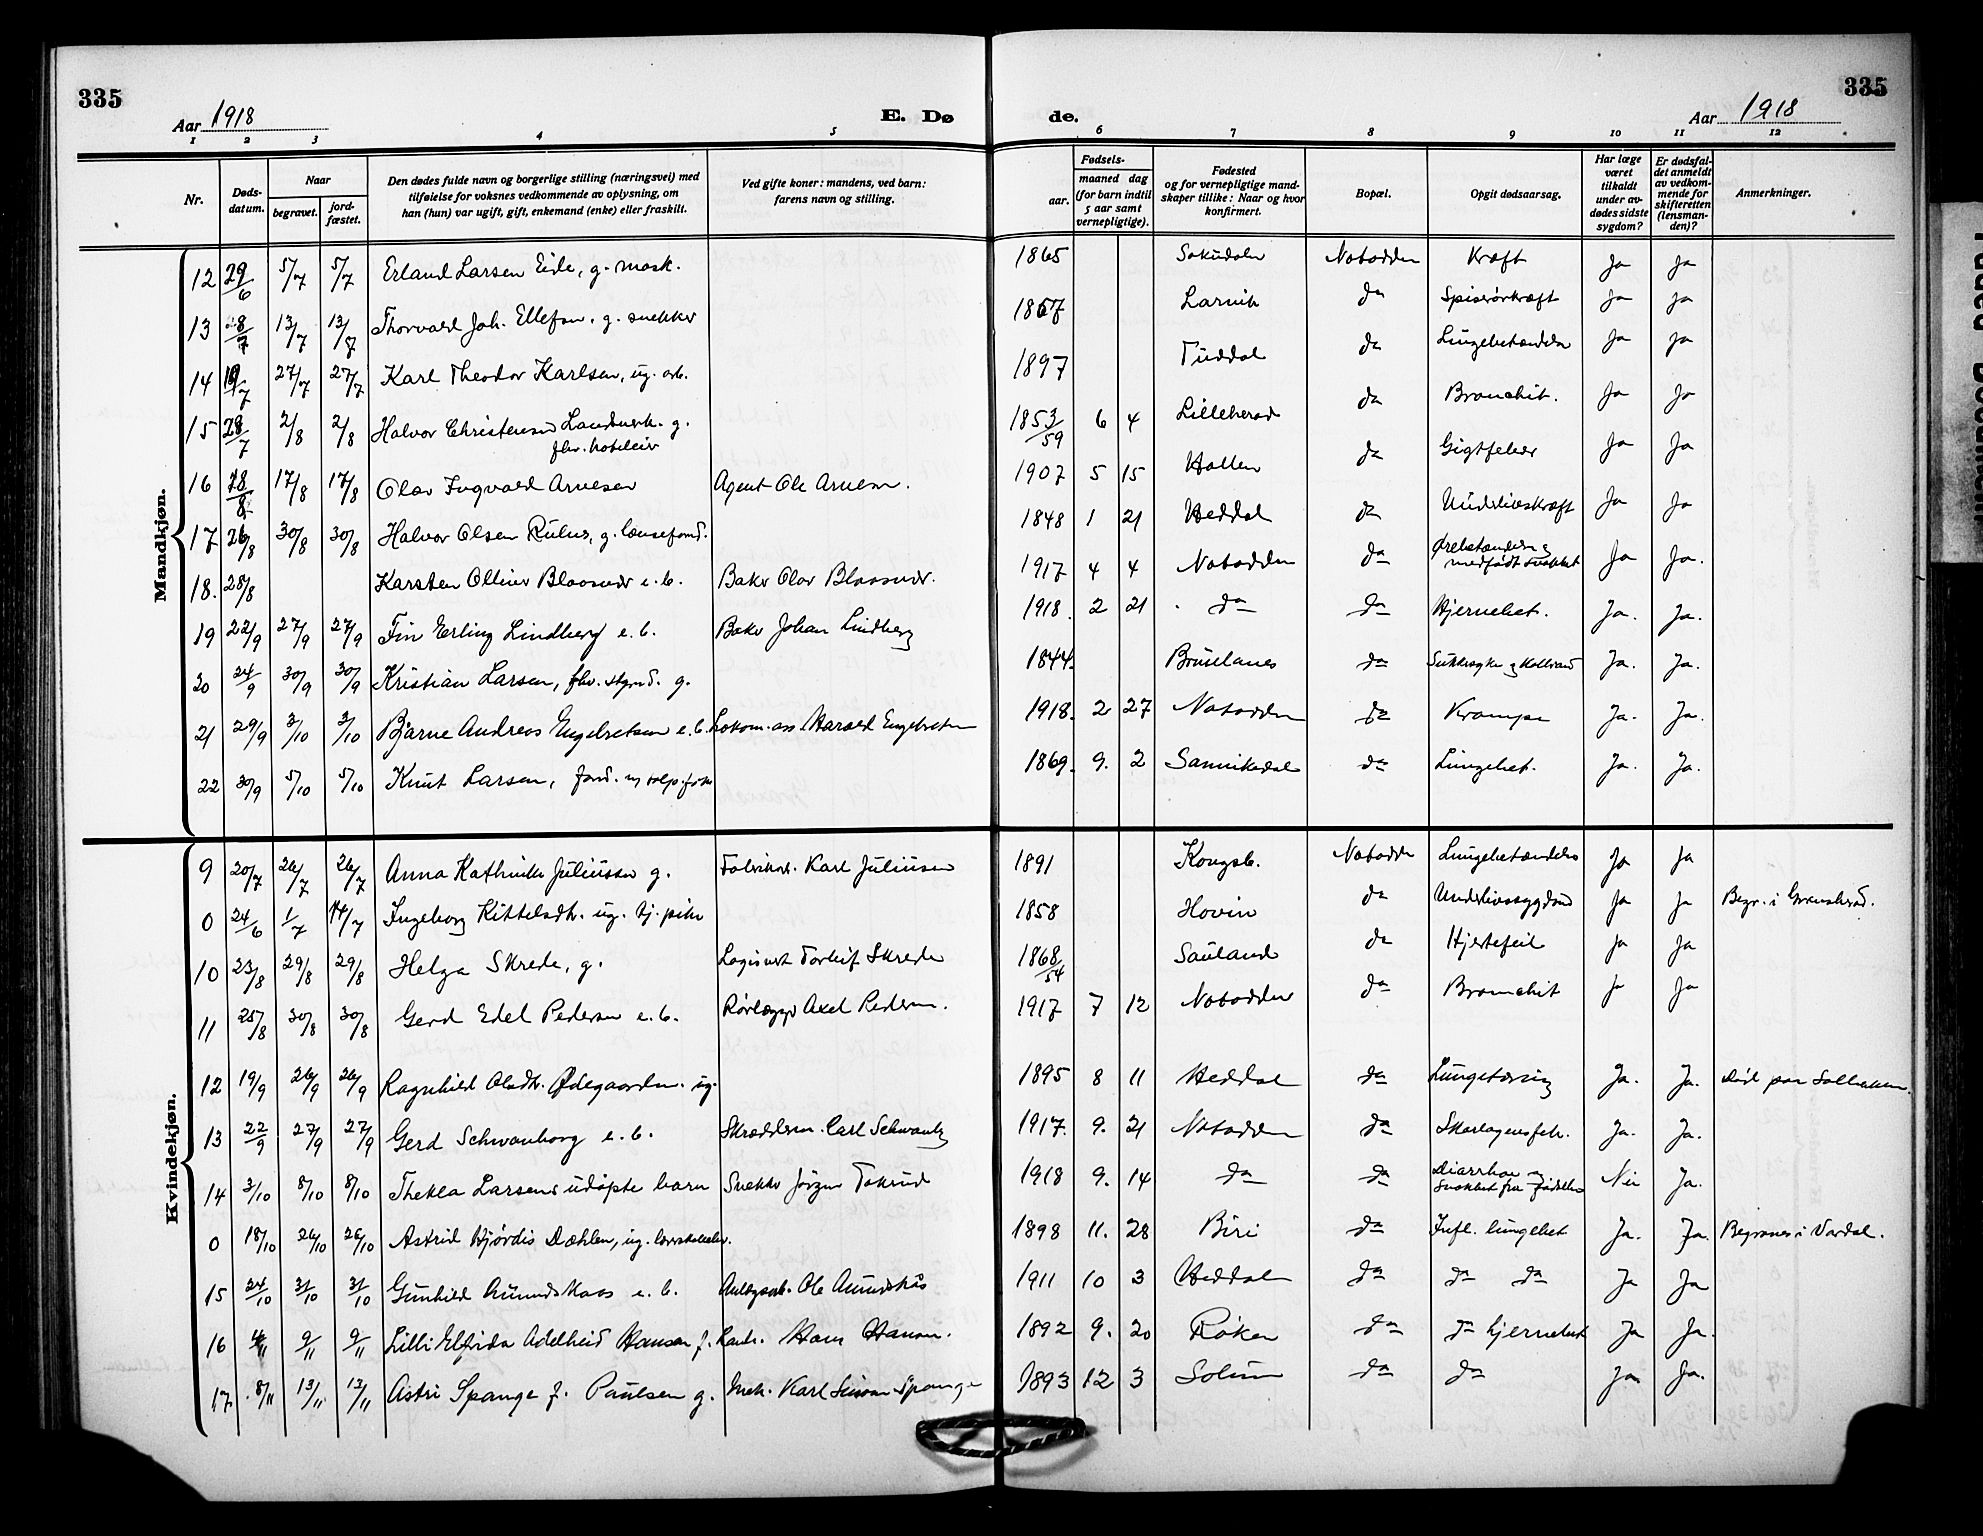 335
335
Aar 1918
E. Dø
de.
Aar 1918
1 2 3 4 5 6 7 8 9 10 11 12
Nr.
Døds-
datum.
Naar
begravet.
jord-
fæstet.
Den dødes fulde navn og borgerlige stilling (næringsvei) med
tilføielse for voksnes vedkommende av oplysning, om
han (hun) var ugift, gift, enkemand (enke) eller fraskilt.
Ved gifte koner: mandens, ved barn:
farens navn og stilling.
Fødsels-
aar.
maaned dag
(for barn indtil
5 aar samt
vernepligtige).
Fødested
og for vernepligtige mand-
skaper tillike: Naar og hvor
konfirmert.
Bopæl.
Opgit dødsaarsag.
Har læge
været
tilkaldt
under av-
dødes sidste
sygdom?
Er dødsfal-
det anmeldt
av vedkom-
mende for
skifteretten
(lensman-
den)?
Anmerkninger.
Mandkjøn.
12 29/6 5/7 5/7 Erland Larsen Eide, g. mask. 1865 Notodden Kræft Ja Ja
13 28/7 13/7 13/7 Thorvald Joh. Ellefsen, g. snekker 1867 Larvik do Spiserørkræft Ja Ja
14 19/7 27/7 27/7 Karl Theodor Karlsen, ug. arb. 1897 Tuddal do Lungebetændelse Ja Ja
15 28/7 2/8 2/8 Halvor Christensen Landverk. g.
fhv. hoteleier 1853/59 6 4 Lilleherad do Bronchit. Ja Ja
16 18/8 17/8 17/8 Olav Ingvald Arnesen Agent Ole Arnesen. 1907 5 15 Hollen do Gigtfeber Ja Ja
17 26/8 30/8 30/8 Halvor Olsen g. lænsefomd. 1848 1 21 Heddal do Underlivskræft Ja Ja
18. 28/8 Karsten Olliver Blaasvær e. b. Baker Olav Blaasvær. 1917 4 4 Notodden do Ørebetændelse og
medfødt svakhet Ja Ja.
19 22/9 27/9 27/9 Fin Erling Lindberg e. b. Baker Johan Lindberg 1918. 2 21 do do Hjernebet. Ja. Ja.
20 24/9 30/9 30/9 Kristian Larsen, fhv. styrmd. g. 1844. Brunlanes do Sukkersyke og Koldbrand Ja. Ja.
21 29/9 3/10 3/10 Bjarne Andreas Engebretsen e. b. Lokom. ass. Harald Engebretsen 1918. 2 27 Notodden do Krampe Ja. Ja.
22 30/9 5/10 5/10 Knut Larsen, 1869. 9. 2 Sannikedal do Lungebet. Ja. Ja.
Kvindekjøn.
9 20/7 26/7 26/7 Anna Kathinka Juliussen g. Fabrikarb. Karl Juliussen 1891 Kongsb. Notodden Lungebetændelse Ja Ja
0 24/6 1/7 14/7 Ingeborg Kittelsdtr. ug. tj. pike 1858 Hovin do Underlivssygdom Ja Ja Begr. i Gransherad.
10 23/8 29/8 29/8 Helga Skrede, g. Logivert Torleif Skrede 1868/54 Sauland do Hjertefeil Ja Ja
11 25/8 30/8 30/8 Gerd Edel Pedersen e. b. Rørlægger Axel Pedersen. 1917 7 12 Notodden do Bronchit Ja Ja
12 19/9 26/9 26/9 Ragnhild Olsdtr. Ødegaarden. ug. 1895 8 11 Heddal do Lungetæring Ja. Ja. Død paa Solbakken.
13 22/9 27/9 27/9 Gerd Schwanborg e. b. Skrædderm. Carl Schwanbg 1917. 9. 21 Notodden do Skarlagensfeb. Ja. Ja.
14 3/10 8/10 8/10 Thekla Larsens udøpte barn Snekker Jørgen Tokrud 1918 9. 14 do do Diarrhoe og
Svakhet fra fødselen Nei Ja.
0 18/10 26/10 26/10 Astrid Hjørdis Dæhlen, ug. lærerskoleelev. 1898 11. 28 Biri do Infl. lungebet Ja. Ja. Begraves i Vardal.
15 24/10 31/10 31/10 Gunhild Amundskaas e. b. Anlægsarb. Ole Amundskås 1911 10 3 Heddal do do do Ja Ja
16 4/11 9/11 9/11 Lilli Elfrida Adelheid Hansen f. Hans Hansen. 1892 9. 20 Røken do do hjernebet Ja Ja.
17. 8/11 13/11 13/11 Astri Spange f. Paulsen g. Mek. Karl Simon Spange 1893 12 3 Solum do do Ja Ja.